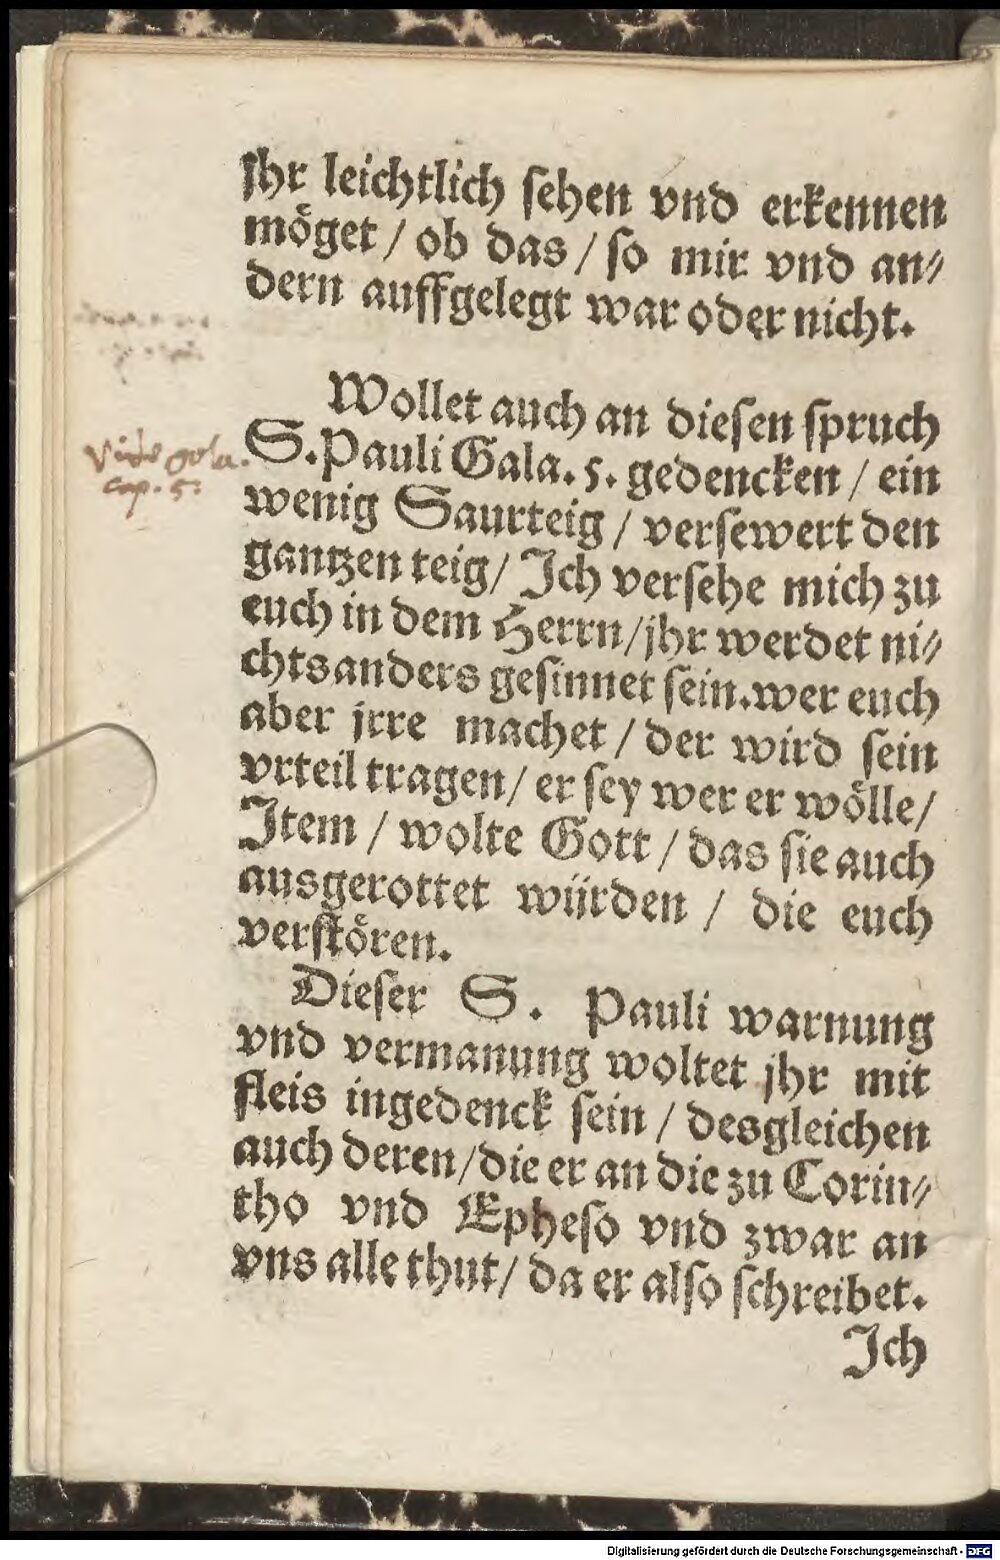 jhr leichtlich sehen vnd erkennen
möget / ob das / so mir vnd an⸗
dern auffgelegt war oder nicht.
Wollet auch an diesen spruch
S. Pauli Gala. 5. gedencken / ein
wenig Saurteig / versewert den
gantzen teig / Ich versehe mich zu
euch in dem Herrn / jhr werdet ni⸗
chts anders gesinnet sein. wer euch
aber jrre machet / der wird sein
vrteil tragen / er sey wer er wölle /
Item / wolte Gott / das sie auch
ausgerottet würden / die euch
verstören.
Dieser S. Pauli warnung
vnd vermanung woltet jhr mit
fleis ingedenck sein / desgleichen
auch deren / die er an die zu Corin⸗
tho vnd Epheso vnd zwar an
vns alle thut / da er also schreibet.
Ich
Vide gala.
cap. 5:
Digitalisierung gefördert durch die Deutsche Forschungsgemeinschaft - DFG